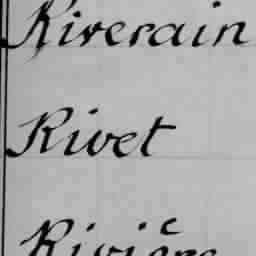 Riverain
Rivet
Rivière